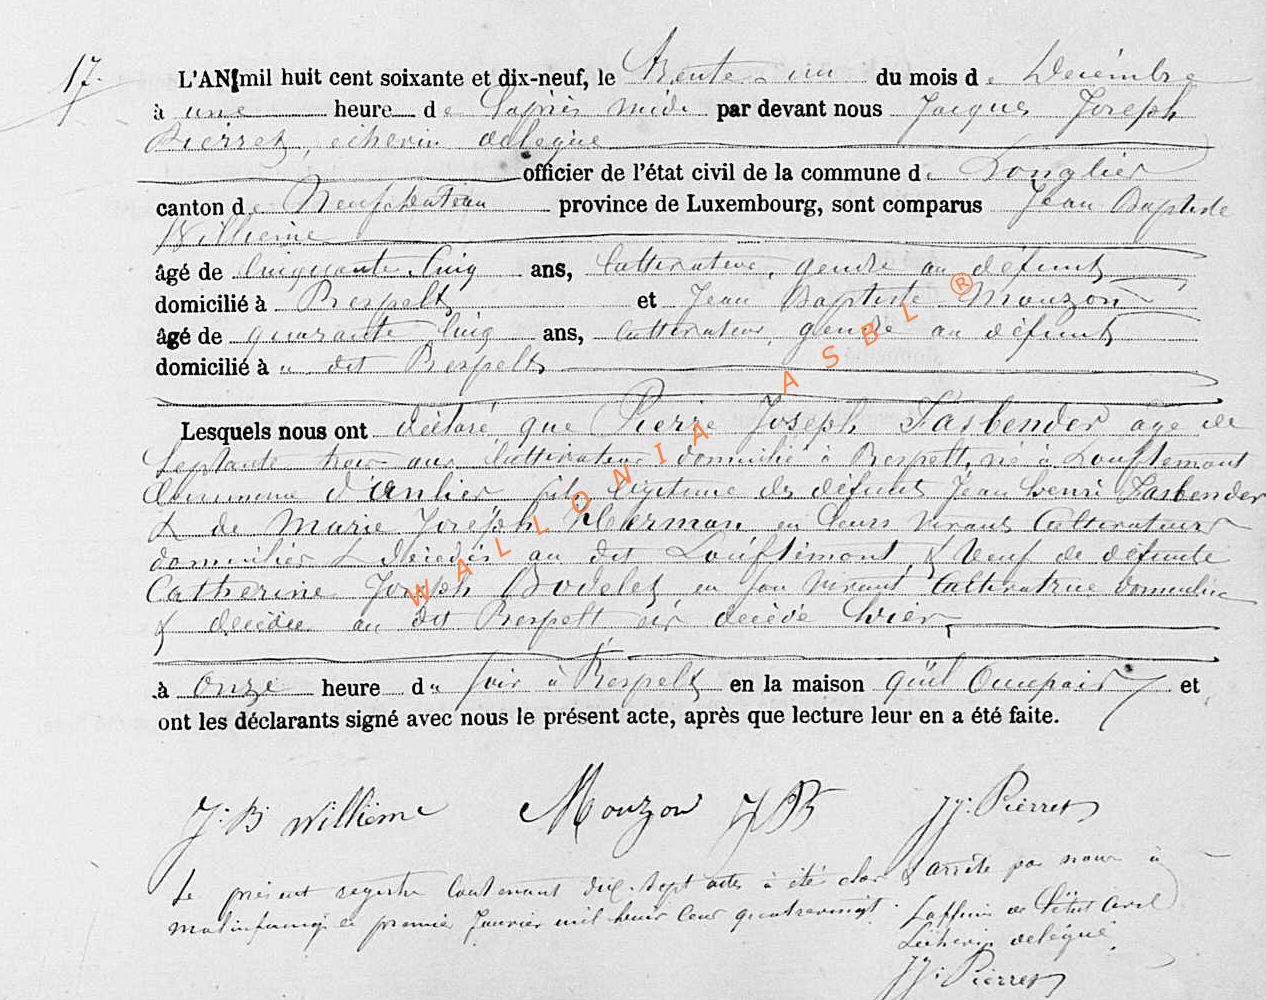 17.
L'AN mil huit cent soixante et dix-neuf, le Trente-un du mois de Décembre
à une heure de l'après midi par devant nous Jacques Joseph
Pierret, échevin délégué
officier de l'état civil de la commune de Longlier
canton de Neufchateau province de Luxembourg, sont comparus Jean Baptiste
Willieme
âgé de Cinquante Cinq ans, Cultivateur, gendre au défunt
domicilié à Respelt et Jean Baptiste Mouzon
âgé de quarante Cinq ans, Cultivateur, gendre au défunt
domicilié à au dit Respelt
Lesquels nous ont déclaré que Pierre Joseph Fasbender âgé de
Septante trois ans Cultivateur domicilié à Respelt, né à Louftemont
Commune d'Anlier fils légitime des défunts Jean henri Fasbender
& de Marie Joseph Herman en leurs vivants Cultivateurs
domiciliés & décédés au dit Louftémont, & Veuf de défunte
Catherine Joseph Bodelet en son vivant Cultivatrice domiciliée
& décédée au dit Respelt est décédé hier
à Onze heure du soir à Respelt en la maison qu'il Occupait et
ont les déclarants signé avec nous le présent acte, après que lecture leur en a été faite.
J. B. Willième Mouzon JB JJ. Pierret
Le présent registre Contenant dix-sept actes à été clos & arrêté par nous à
le premier Janvier mil huit Cent quatrevingt. L'officier de l'état Civil
L'échevin délégué
JJ. Pierret
WALLONIA ASBL ®